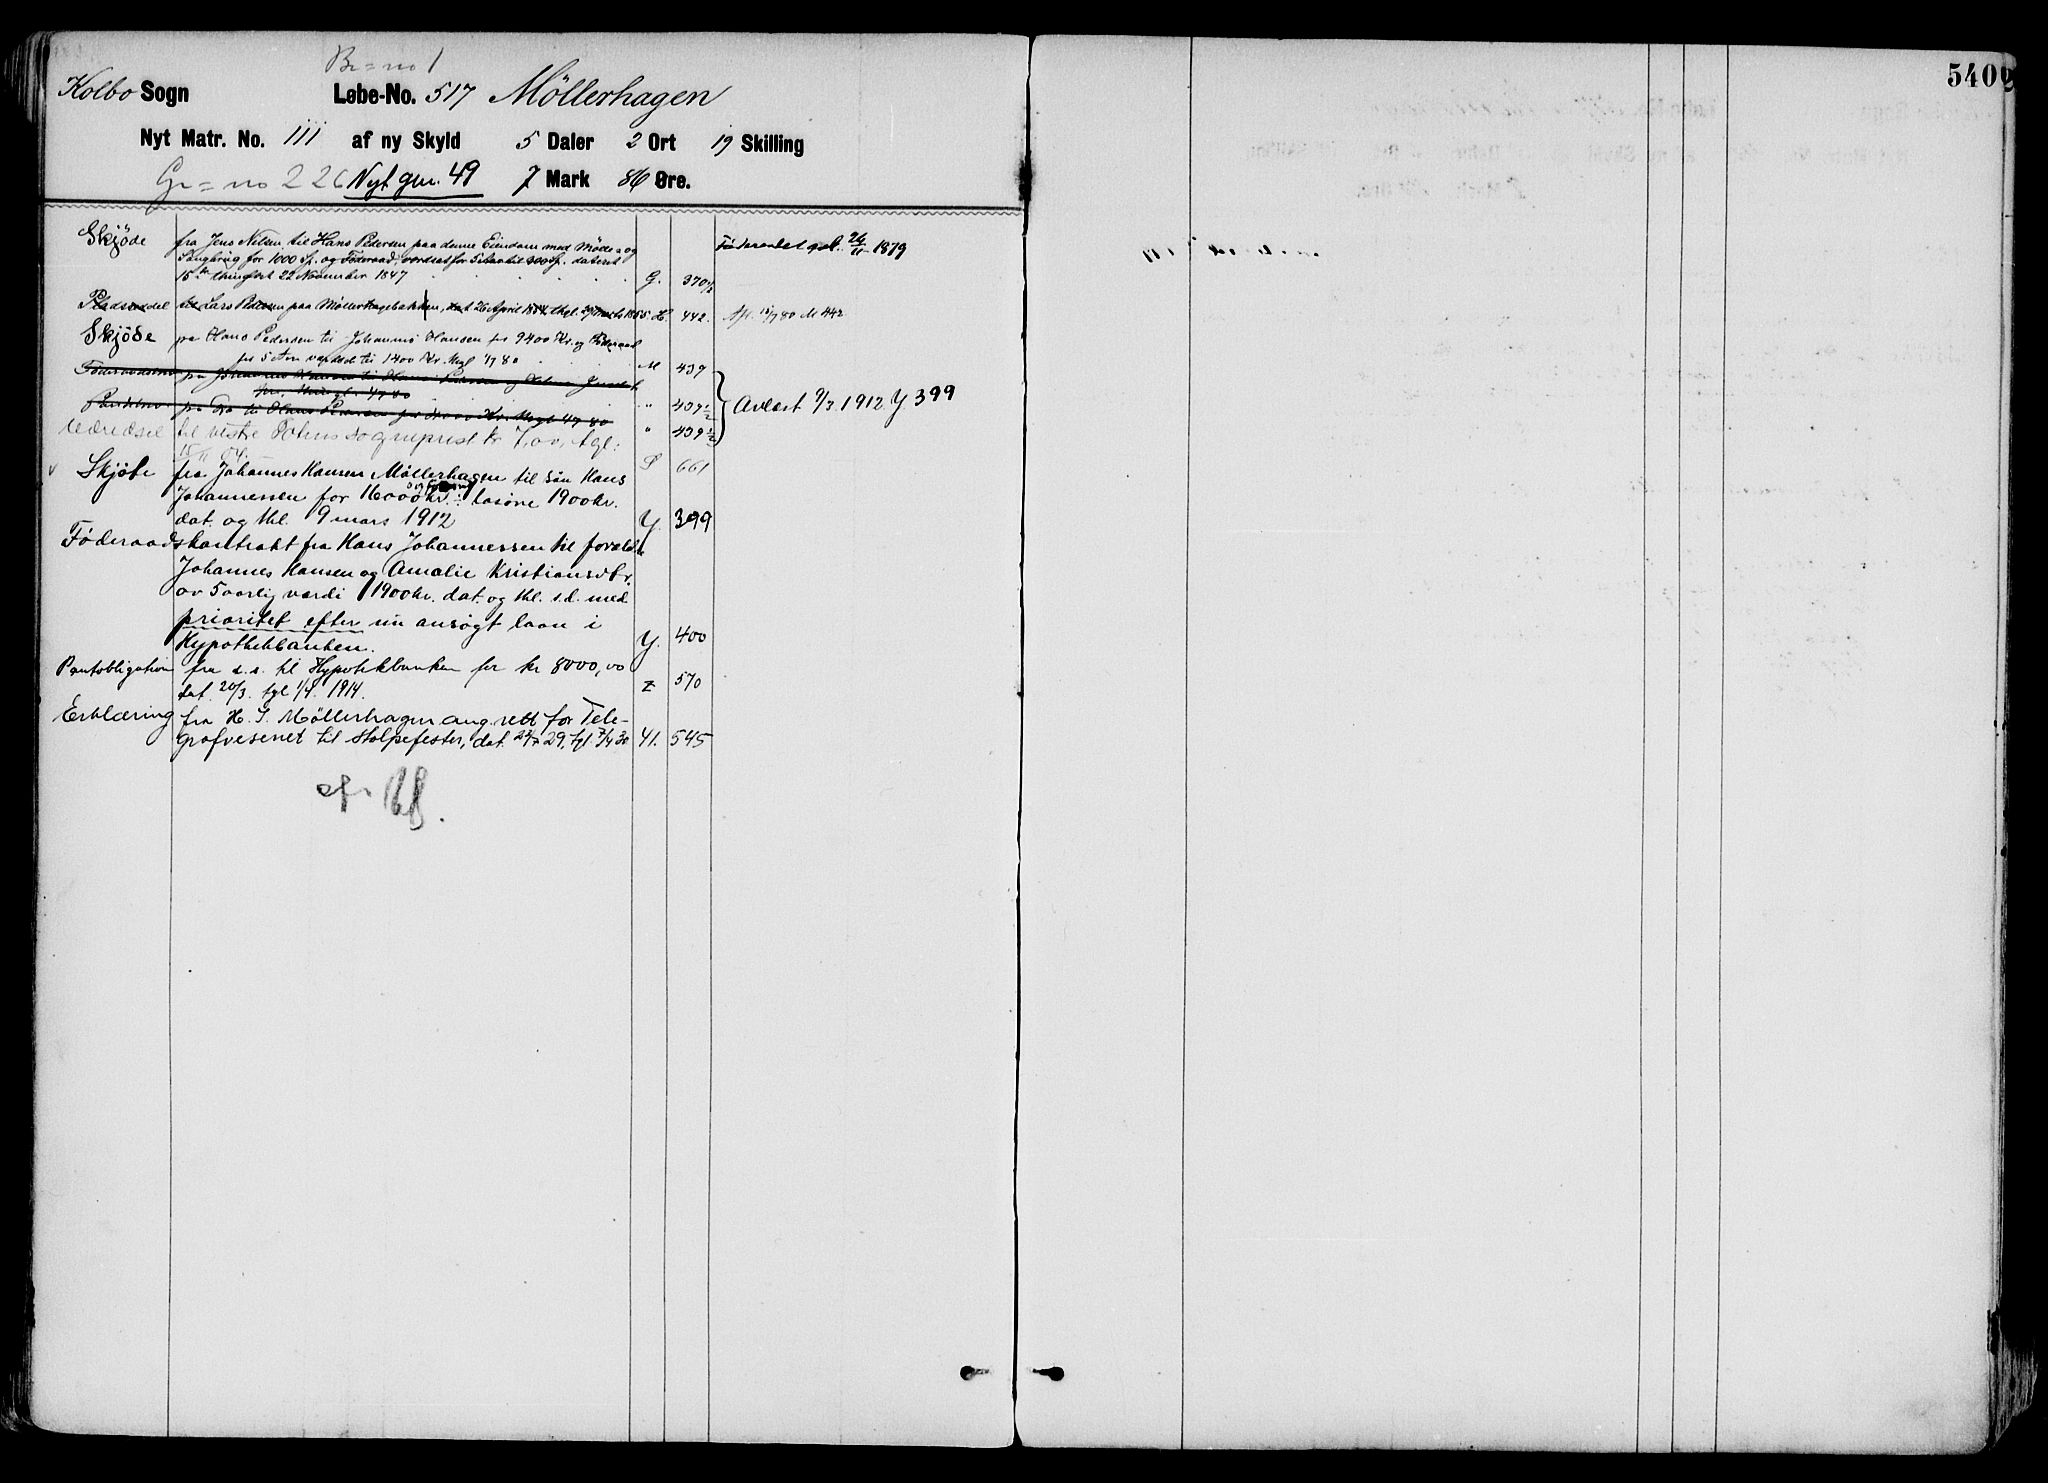 Br=no 1
Kolbo Sogn Løbe-No. 517 Möllerhagen
540
Nyt Matr. No. 111 af ny Skyld 5 Daler 2 Ort 19 Skilling
Gr=no 226 Nyt gnr. 49 7 Mark 86 Øre.
Skjöde fra Jens Nilsen til Hans Pedersen paa denne Eiendom med Mölle- og
Saugbrug for 1000 Sp. og Föderaad, værdsat for 5 Aar til 300 Sp. dateret
15de thinglæst 22 November 1847 G. 370 1/2 Föderaadet qvit. 26/11 1879
Pladsseddel til Lars Pedersen paa Møllerhagebakken, dat 26 April 1854 thgl. 29 Marts 1855 H. 442. Afl. 13/7 80 M 442
Skjöde fra Hans Pedersen til Johannes Hansen for 9400 Kr. og Föderaad
for 5 Aar værdsat til 1400 Kr. thgl 1/7 80 M 439
fra Johannes Hansen til Hans Pedersen og
thingl. 1/7 80 " 409 1/2 Avlæst 9/3 1912 Y 399
fra Do til Hans Pedersen for Kr. thgl 1/7 80 " 439 1/2
til vestre Totens sogneprest kr 7,00, tgl.
15/11 04. S 661
v Skjöte fra Johannes Hansen Möllerhagen til sön Hans
Johannessen for 16000 kr. : lösöre 1900 kr.
dat. og thl. 9 mars 1912 Y. 399
Föderaadskontrakt fra Hans Johannessen til foræld.
Johannes Hansen og Amalie Kristiansdtr.
av 5 aarlig værdi 1900 kr. dat. og thl. s.d. med
prioritet efter nu ansøgt laan i
Hypothekbanken. Y. 400
Pantobligation fra s.s. til Hypotekbanken for kr 8000,00
dat. 20/3. tgl 1/4. 1914. Z 570
Erklæring fra H. J. Möllerhagen ang. rett for Tele-
grafvesenet til stolpefester, dat. 29, tgl. 7/4 30 41. 545